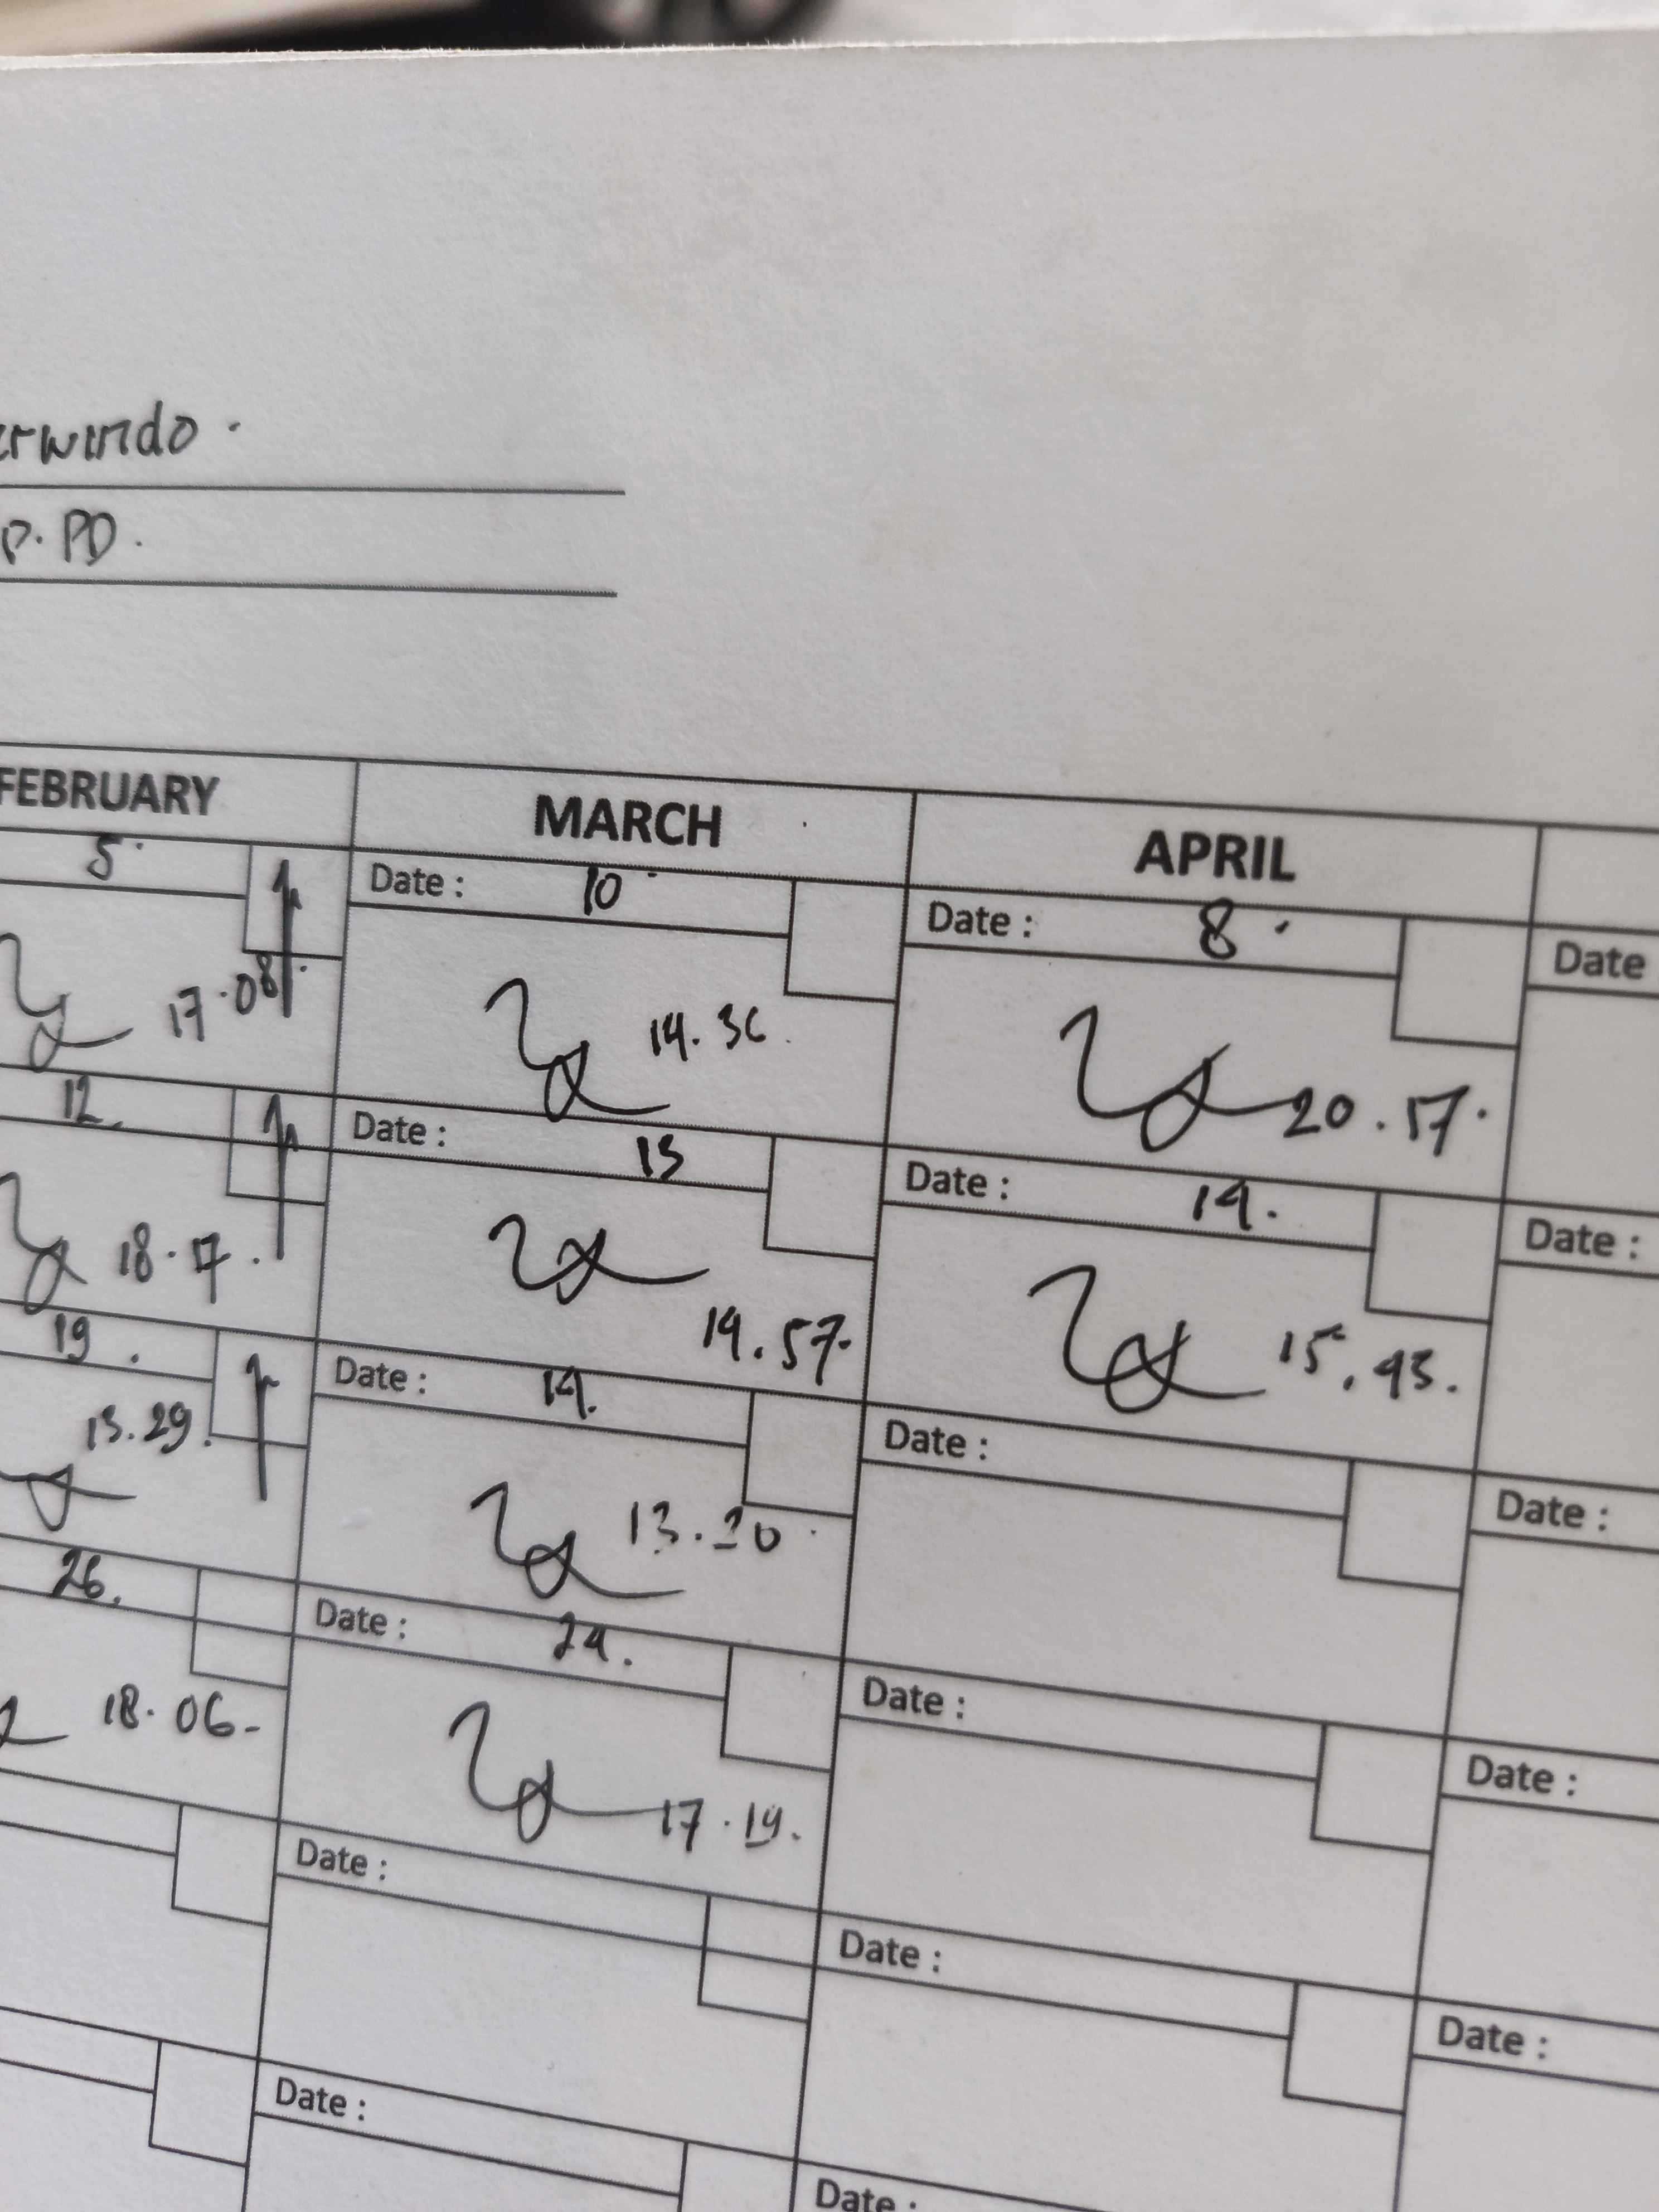 erwindo.
P. PD.
FEBRUARY MARCH APRIL
5. Date : 10 Date : 8. Date
17.08 14.36. 20.17.
12. Date : 13 Date : 14. Date :
18.17. 14.57. 15.43.
19. Date : 14. Date : Date :
13.29. 13.20
26. Date : 24. Date : Date :
18.06- 17.19.
Date : Date : Date :
Date : Date :